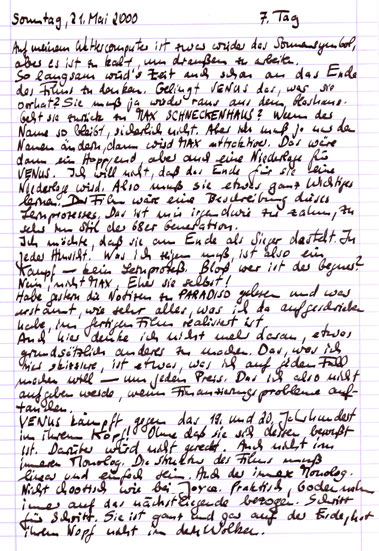 Sonntag, 21. Mai 2000 7. Tag
Auf meinem Wettercomputer ist zwar wieder das Sonnensymbol,
aber es ist zu kalt, um draußen zu arbeiten.
So langsam wird's Zeit auch schon an das Ende
des Films zu denken. Gelingt VENUS das, was sie
vorhat? Sie muß ja wieder raus aus dem Glashaus.
Geht sie zurück zu MAX SCHNECKENHAUS? Wenn der
Name so bleibt, sicherlich nicht. Aber ich muß ja nur den
Namen ändern, dann wird MAX attraktiver. Das wäre
dann ein Happyend, aber auch eine Niederlage für
VENUS. Ich will nicht, daß das Ende für sie eine
Niederlage wird. Also muß sie etwas ganz Wichtiges
lernen. Der Film wäre eine Beschreibung dieses
Lernprozesses. Das ist mir irgendwie zu zahm, zu
sehr im Stil der 68er Generation.
Ich möchte, daß sie am Ende als Sieger dasteht. In
jeder Hinsicht. Was ich zeigen muß, ist also ein
Kampf – kein Lernprozeß. Bloß wer ist der Gegner?
Nein, nicht MAX. Eher sie selbst!
Habe gestern die Notizen zu PARADISO gelesen und war
erstaunt, wie sehr alles, was ich da aufgeschrieben
habe, im fertigen Film realisiert ist.
Auch hier denke ich nicht mehr daran, etwas
grundsätzlich anderes zu machen. Das, was ich
hier skizziere, ist etwas, was ich auf jeden Fall
machen will – um jeden Preis. Das ich also nicht
aufgeben werde, wenn Finanzierungsprobleme auf-
tauchen.
VENUS kämpft gegen das 19. und 20. Jahrhundert
in ihrem Kopf! Ohne daß sie sich dessen bewußt
ist. Darüber wird nicht geredet. Auch nicht im
inneren Monolog. Die Struktur des Films muß
linear und einfach sein. Auch der innere Monolog.
Nicht chaotisch wie bei Joyce. Praktisch,
immer auf das nächstliegende bezogen. Schritt
für Schritt. Sie ist ganz und gar auf der Erde, hat
ihren Kopf nicht in den Wolken.